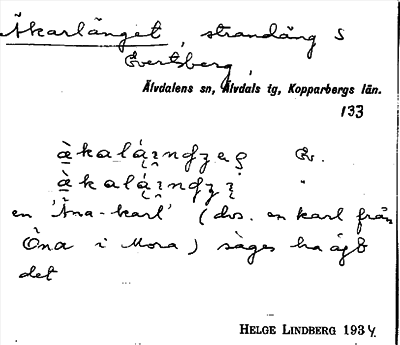 Åkarlänget, strandäng S
Evertsberg,
Älvdalens sn, Älvdals tg, Kopparbergs län.
133
Ev.
"
en 'Åna-karl' (dvs. en karl från
Öna i Mora) säges ha ägt
det
HELGE LINDBERG 1934.